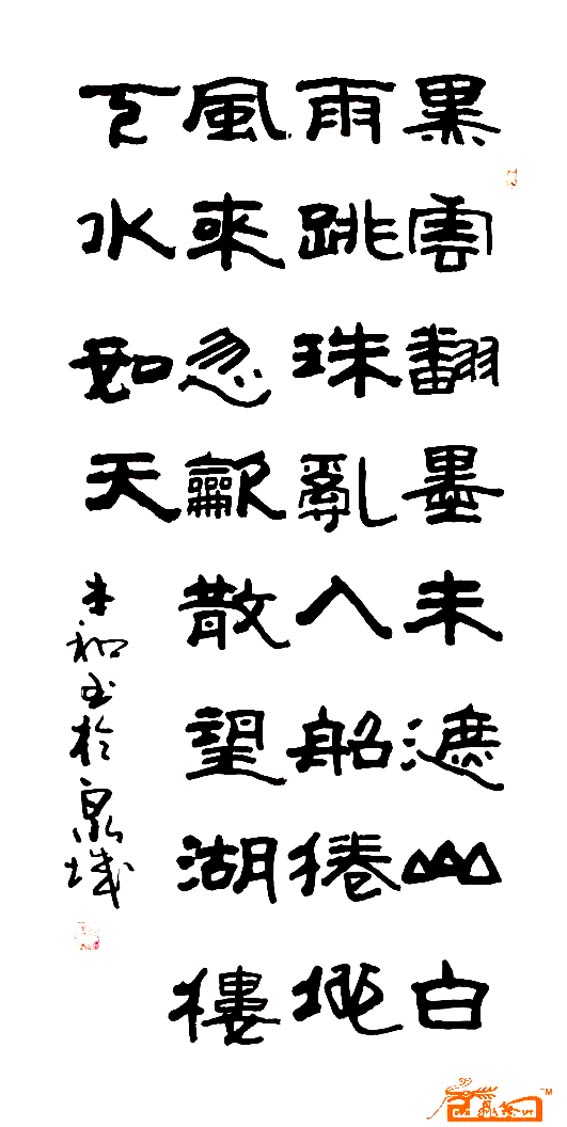 黑雲翻墨未遮山白
雨跳珠亂入船捲地
風來忽龡散望湖樓
下水如天
书於泉城